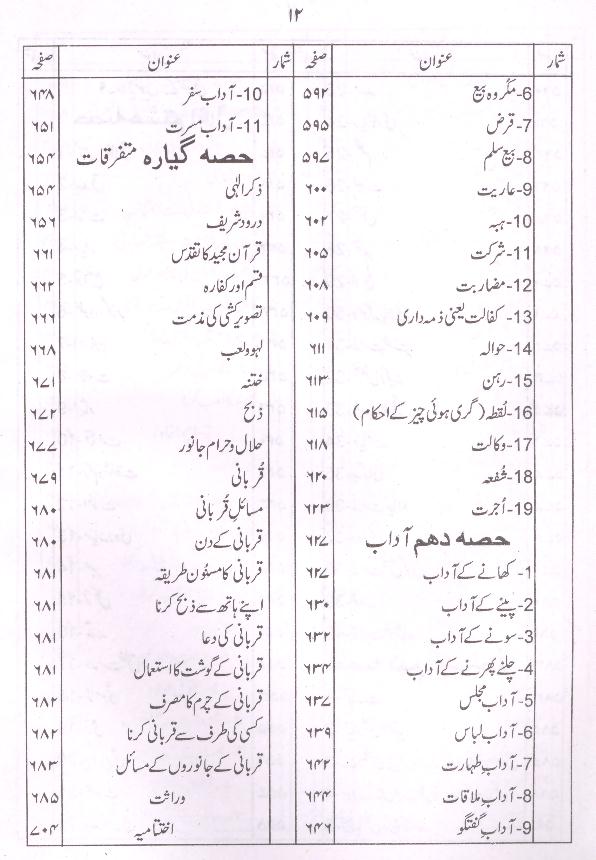 ۱۲
شمار عنوان صفحہ
6- مکروہ بیع ۵۹۲
7- قرض ۵۹۵
8- بیع سلم ۵۹۷
9- عاریت ۶۰۰
10- ہبہ ۶۰۲
11- شرکت ۶۰۵
12- مضاربت ۶۰۸
13- کفالت یعنی ذمہ داری ۶۰۹
14- حوالہ ۶۱۱
15- رہن ۶۱۳
16- لُقطہ (گری ہوئی چیز کے احکام) ۶۱۵
17- وکالت ۶۱۸
18- شُفعہ ۶۲۰
19- اُجرت ۶۲۳
حصہ دھم آداب ۶۲۷
1- کھانے کے آداب ۶۲۷
2- پینے کے آداب ۶۳۰
3- سونے کے آداب ۶۳۲
4- چلنے پھرنے کے آداب ۶۳۴
5- آداب مجلس ۶۳۷
6- آداب لباس ۶۳۹
7- آداب طہارت ۶۴۲
8- آداب ملاقات ۶۴۴
9- آداب گفتگو ۶۴۶
شمار عنوان صفحہ
10- آداب سفر ۶۴۸
11- آداب مسرت ۶۵۱
حصہ گیارہ متفرقات ۶۵۴
ذکر الٰہی ۶۵۴
درود شریف ۶۵۶
قرآن مجید کا تقدس ۶۶۱
قسم اور کفارہ ۶۶۲
تصویر کشی کی مذمت ۶۶۶
لہو ولعب ۶۶۸
ختنہ ۶۷۱
ذبح ۶۷۲
حلال وحرام جانور ۶۷۷
قُربانی ۶۷۹
مسائل قُربانی ۶۸۰
قربانی کے دن ۶۸۰
قربانی کا مسنُون طریقہ ۶۸۱
اپنے ہاتھ سے ذبح کرنا ۶۸۱
قربانی کی دعا ۶۸۱
قربانی کے گوشت کا استعمال ۶۸۱
قربانی کے چرم کا مصرف ۶۸۲
کسی کی طرف سے قربانی کرنا ۶۸۲
قربانی کے جانوروں کے مسائل ۶۸۳
وراثت ۶۸۵
اختتامیہ ۷۰۴